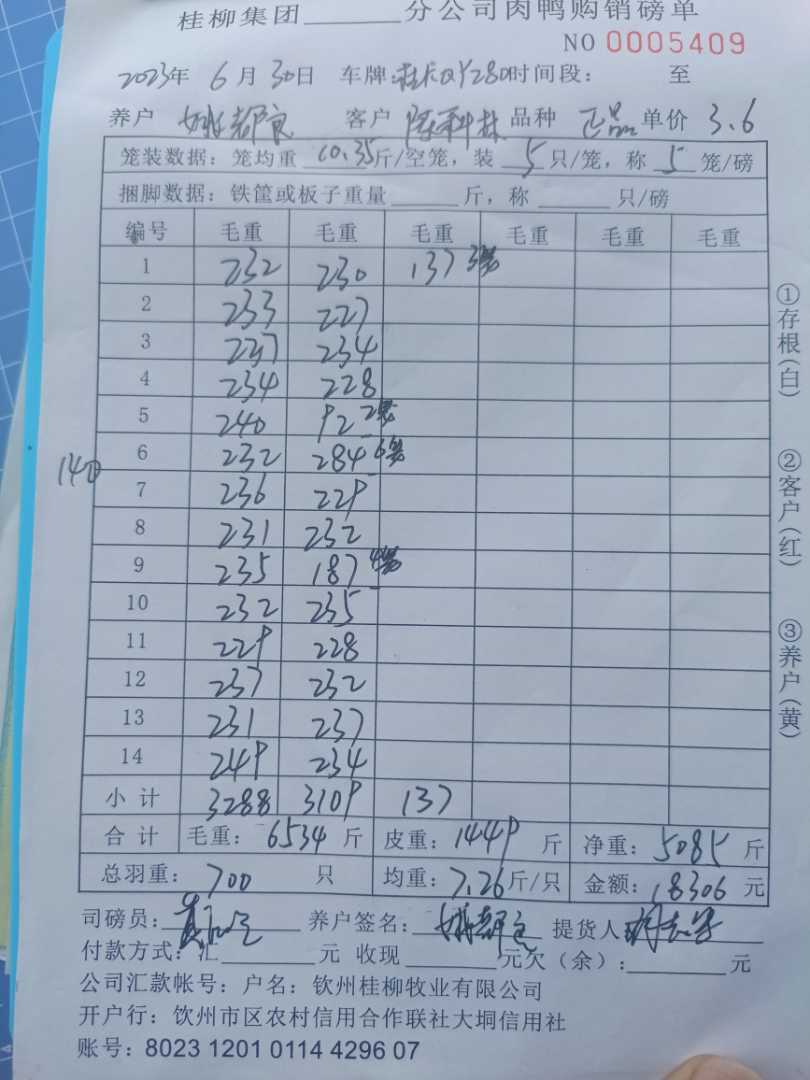 桂柳集团______分公司肉鸭购销磅单
NO 0005409
2023年 6月30日 车牌: 时间段: 至
养户 客户 品种 正品 单价 3.6
笼装数据: 笼均重 10.35斤/空笼, 装 5 只/笼, 称 5 笼/磅
捆脚数据: 铁筐或板子重量______斤, 称______只/磅
编号 毛重 毛重 毛重 毛重 毛重 毛重
1 232 230 137 3笼
2 233 227
3 237 234
4 234 228
5 240 92 2笼
140
6 232 284 6笼
7 236 229
8 231 232
9 235 187 4笼
10 232 235
11 229 228
12 237 232
13 231 237
14 249 234
小计 3288 3109 137
合计 毛重: 6534 斤 皮重: 1449 斤 净重: 5085 斤
总羽重: 700 只 均重: 7.26斤/只 金额: 18306 元
司磅员: 养户签名: 提货人
付款方式: 汇______元 收现______元欠(余):______元
公司汇款帐号: 户名: 钦州桂柳牧业有限公司
开户行: 钦州市区农村信用合作联社大垌信用社
账号: 8023 1201 0114 4296 07
①存根(白)
②客户(红)
③养户(黄)